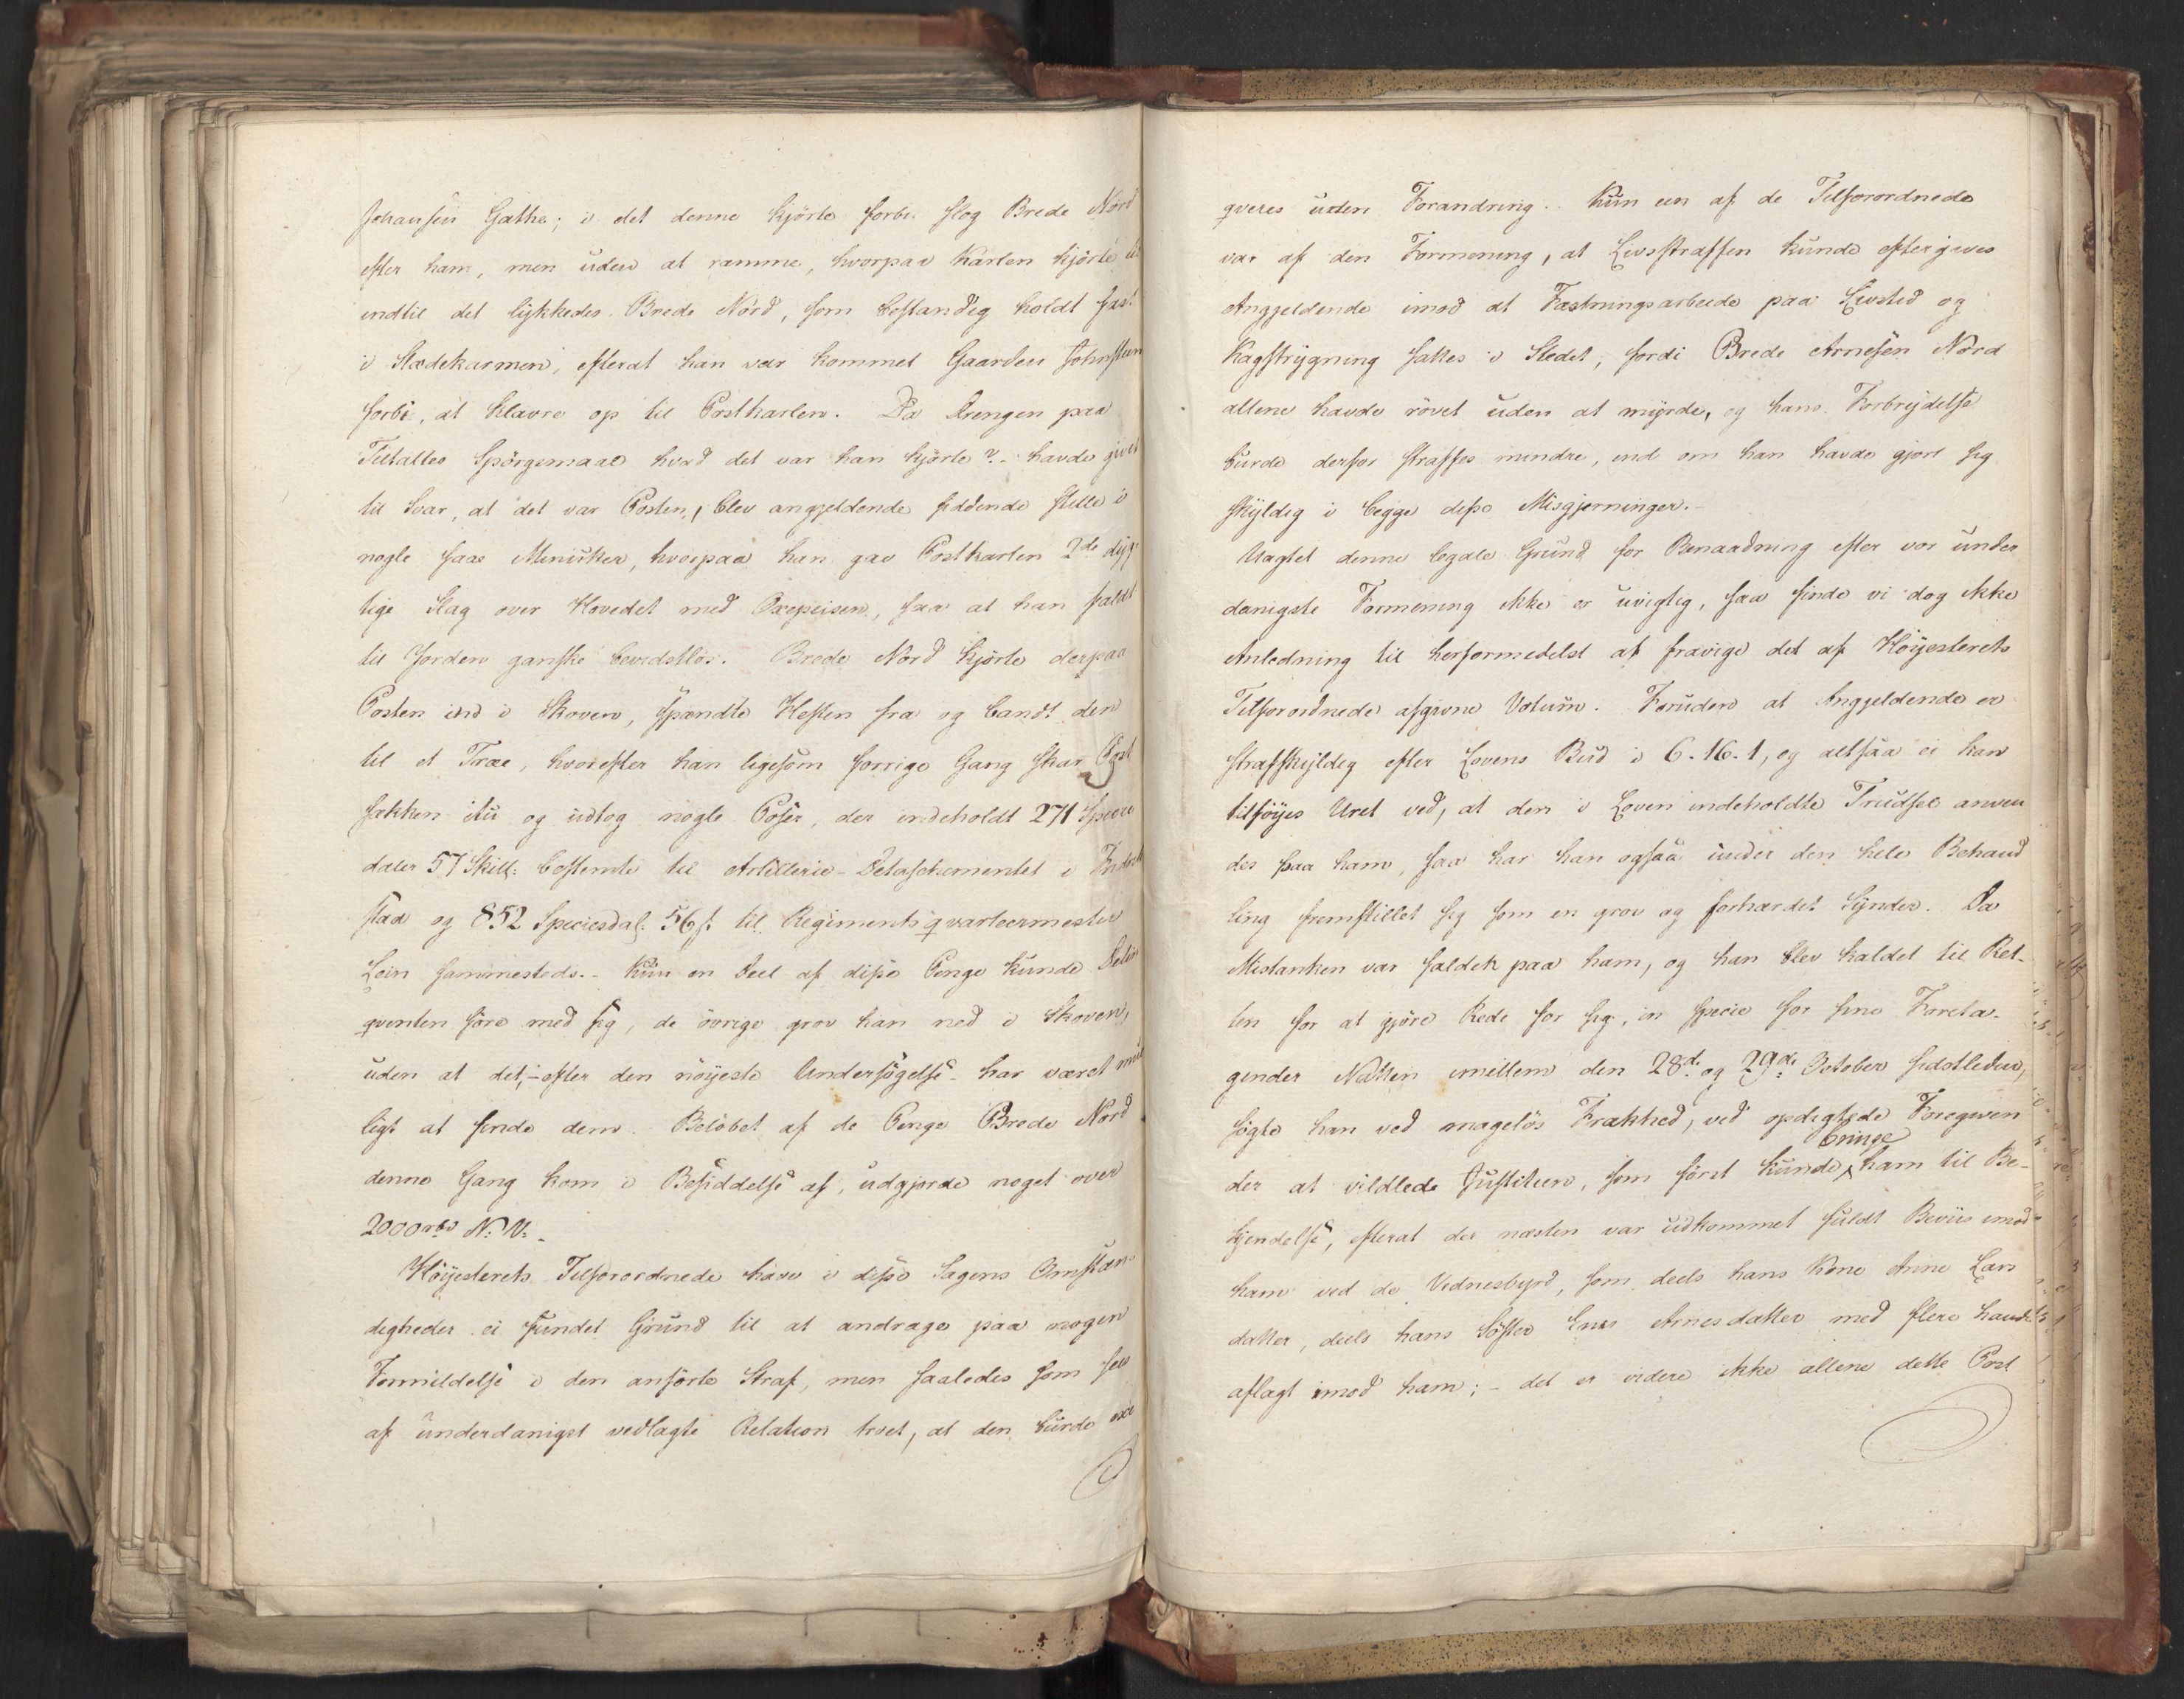 Johansen Gathe; i det denne kjörte forbi slog Brede Nord
efter ham, men uden at ramme, hvorpaa Karlen kjörte til
indtil det lykkedes Brede Nord, som bestandig holdt fast
i Slædekarmen, efterat han var kommet Gaarden Johnsteen
forbi, at klavre op til Postkarlen. Da Drengen paa
Tiltaltes Spörgsmaal hvad det var han kjörte? - havde givet
til Svar, at det var Posten, blev angjeldende siddende stille i
nogle faae Minutter, hvorpaa han gav Postkarlen 2de dyg-
tige Slag over Hovedet med Oxepeisen, saa at han faldt
til Jorden ganske bevidstlös. Brede Nord kjörte derpaa
Posten ind i Skoven, spændte Hesten fra og bandt den
til et Træe, hvorefter han ligesom forrige Gang skar Post
sækken itu og udtog nogle Poser, der indeholdt 271 Specie
daler 57 Skill: bestemte til Artillerie-Detaschementet i Fredrik
stad og 852 Speciesdal. 56 s. til Regimentsqvarteermester
Lein sammesteds. - Kun en Deel af disse Penge kunde Delin
qventen före med sig, de övrige grov han ned i Skoven,
uden at det, - efter den nöyeste Undersögelse - har været mu
ligt at finde dem. Belöbet af de Penge Brede Nord
denne Gang kom i Besiddelse af, udgjorde noget over
2000 rbd N: V: -
Höyesterets Tilforordnede have i disse Sagens Omstæn-
digheder ei fundet Grund til at andrage paa nogen
Formildelse i den anförte Straf, men saaledes som sees
af underdanigst vedlagte Relation troet, at den burde exe
qveres uden Forandring. Kun een af de Tilforordnede
var af den Formening, at Livsstraffen kunde eftergives
Angjeldende imod at Fæstningsarbeide paa Livstid og
Kagstrygning sattes i Stedet, fordi Brede Arnesen Nord
allene havde rövet uden at myrde, og hans Forbrydelse
burde derfor straffes mindre, end om han havde gjort sig
skyldig i begge disse Misgjerninger. -
Uagtet denne legale Grund for Benaadning efter vor under
danigste Formening ikke er uvigtig, saa finde vi dog ikke
Anledning til herformedelst at fravige det af Höyesterets
Tilforordnede afgivne Votum. Foruden at Angjeldende er
strafskyldig efter Lovens Bud i 6-16-1, og altsaa ei kan
tilföyes Uret ved, at den i Loven indeholdte Trudsel anven
des paa ham, saa har han ogsaa under den hele Behand
ling fremstillet sig som en grov og forhærdet Synder. Da
Mistanken var faldet paa ham, og han blev kaldet til Ret-
ten for at gjöre Rede for sig, in specie for sine Foreta-
gender Natten imellem den 28de og 29de October sidstleden,
sögte han ved magelös Frækhed, ved opdigtede Foregiven
der at vildlede Justitien, som först kunde bringe ham til Be-
kjendelse, efterat der næsten var udkommet fuldt Beviis imod
ham ved de Vidnesbyrd, som deels hans Kone Anne Lars
datter, deels hans Söster Arnesdatter med flere havde
aflagt imod ham; - det er videre ikke allene dette Post